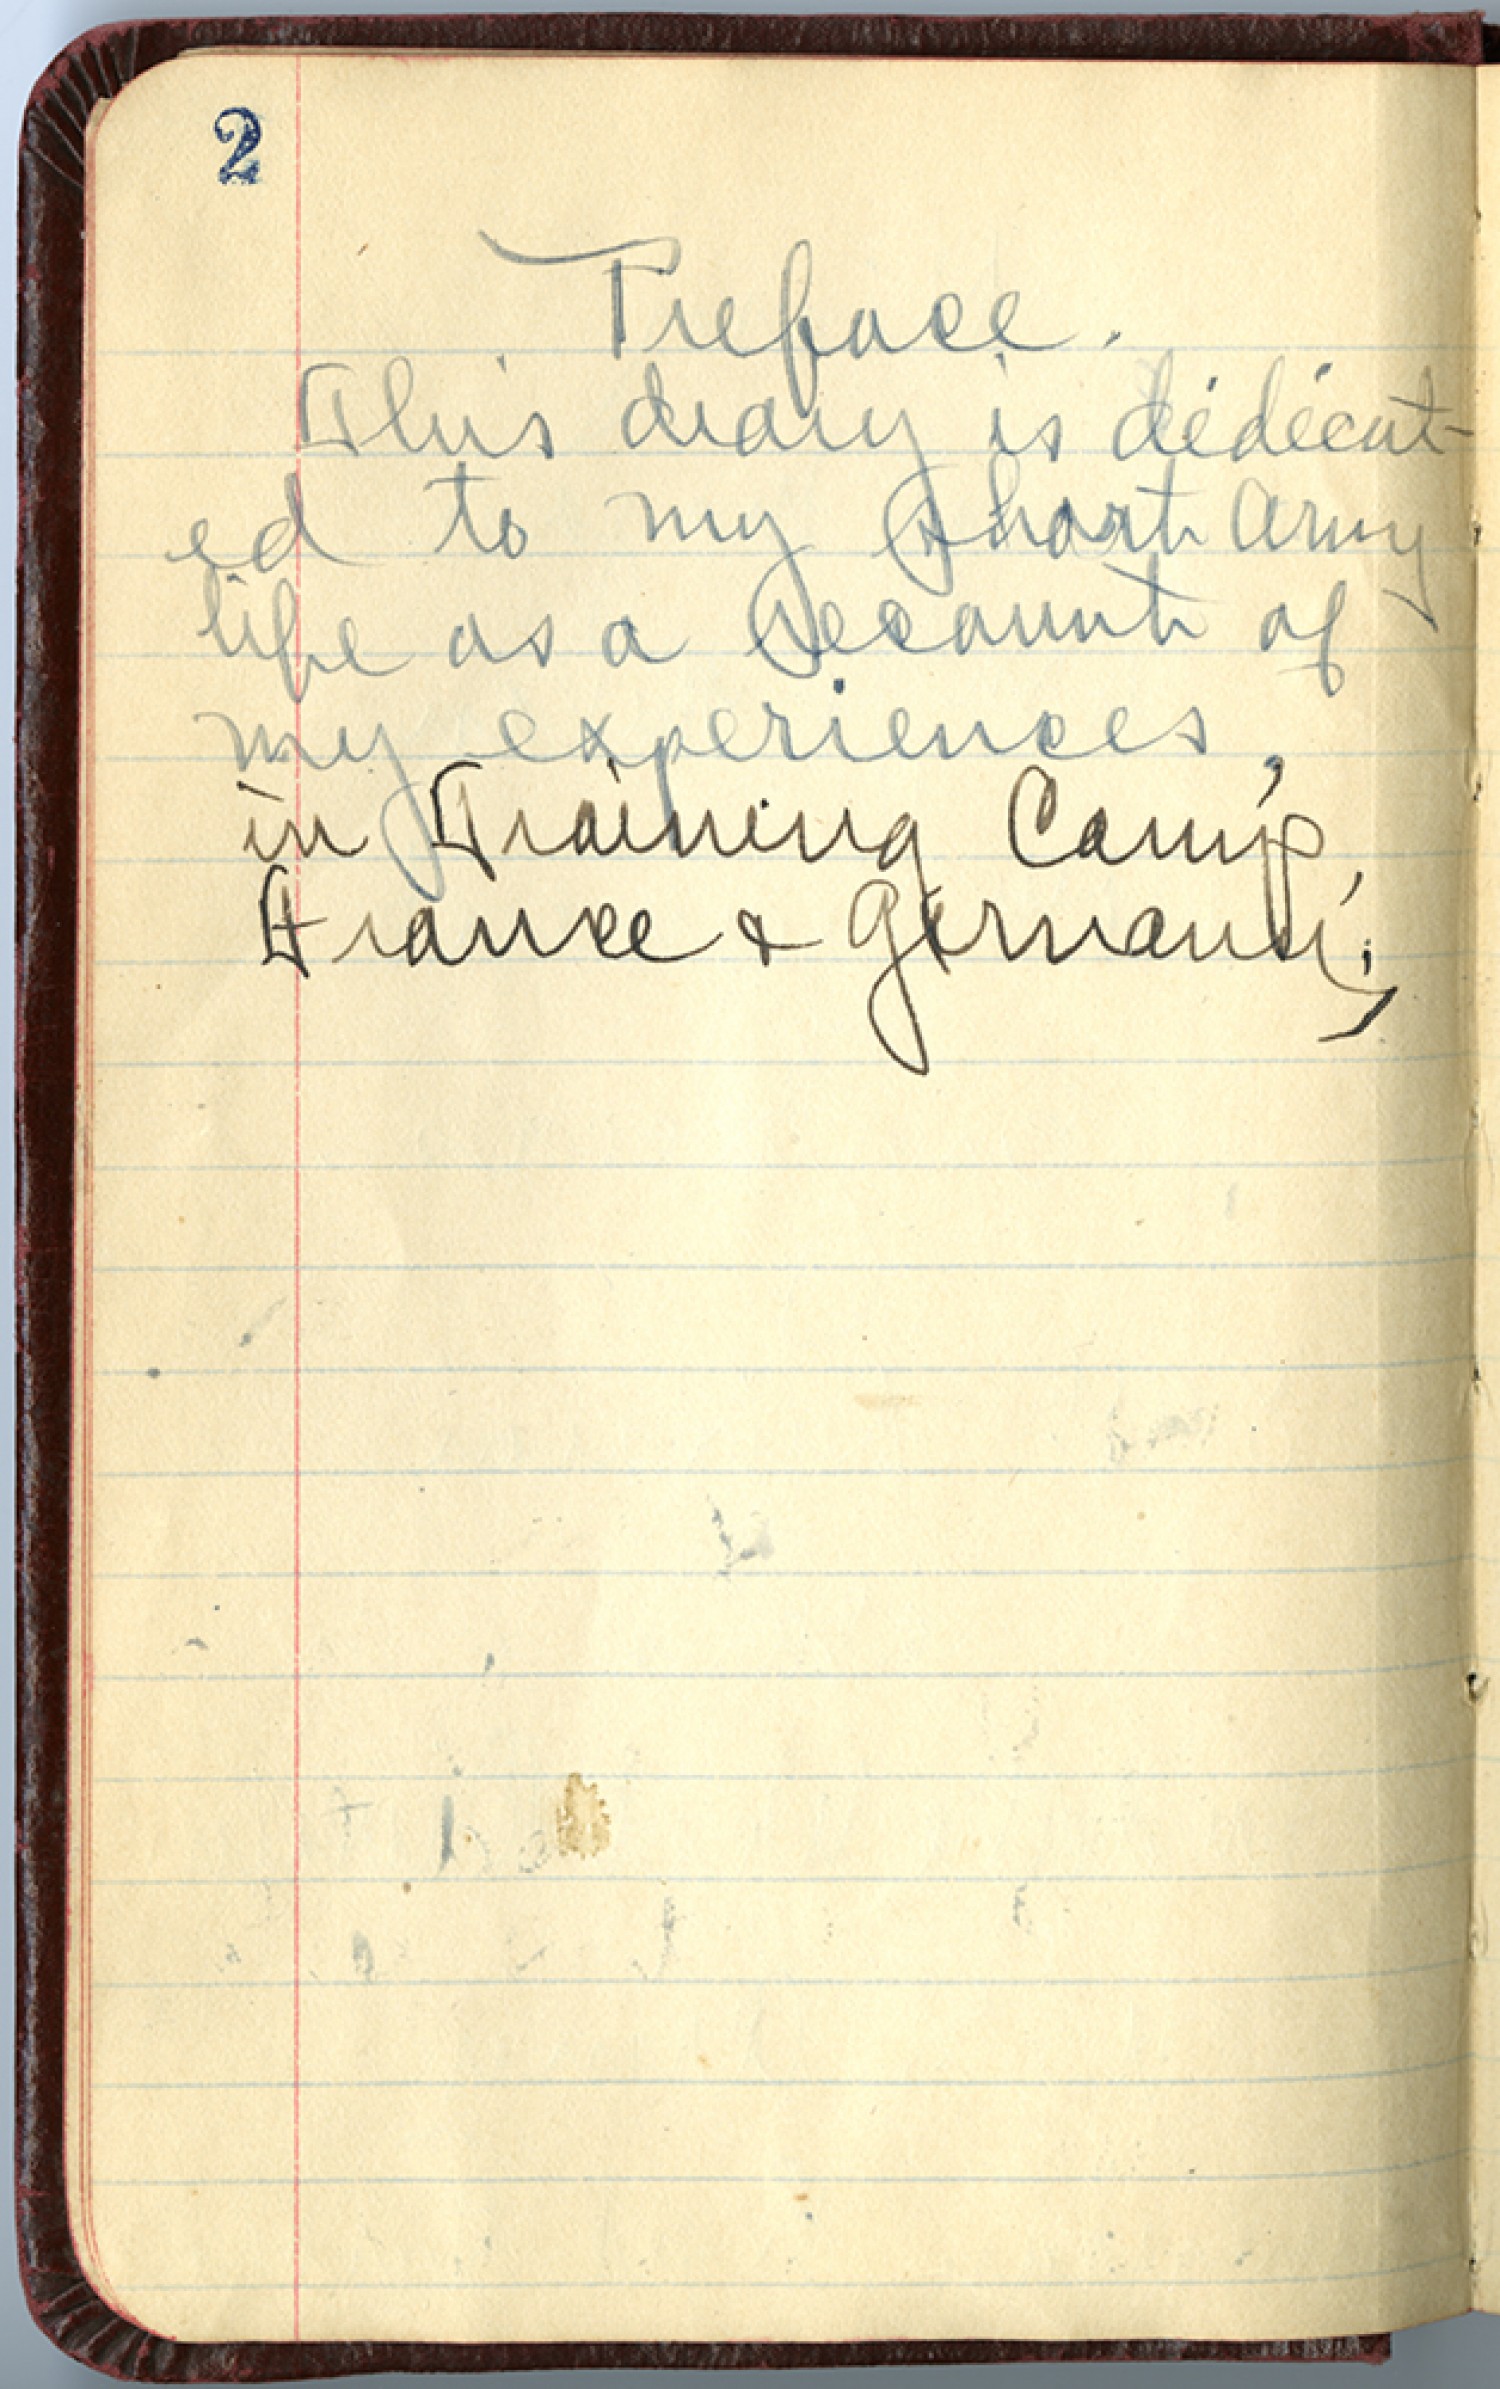 2
Preface.
This diary is dedicat-
ed to my short Army
life as a account of
my experiences,
in Training Camp,
France & Germany.